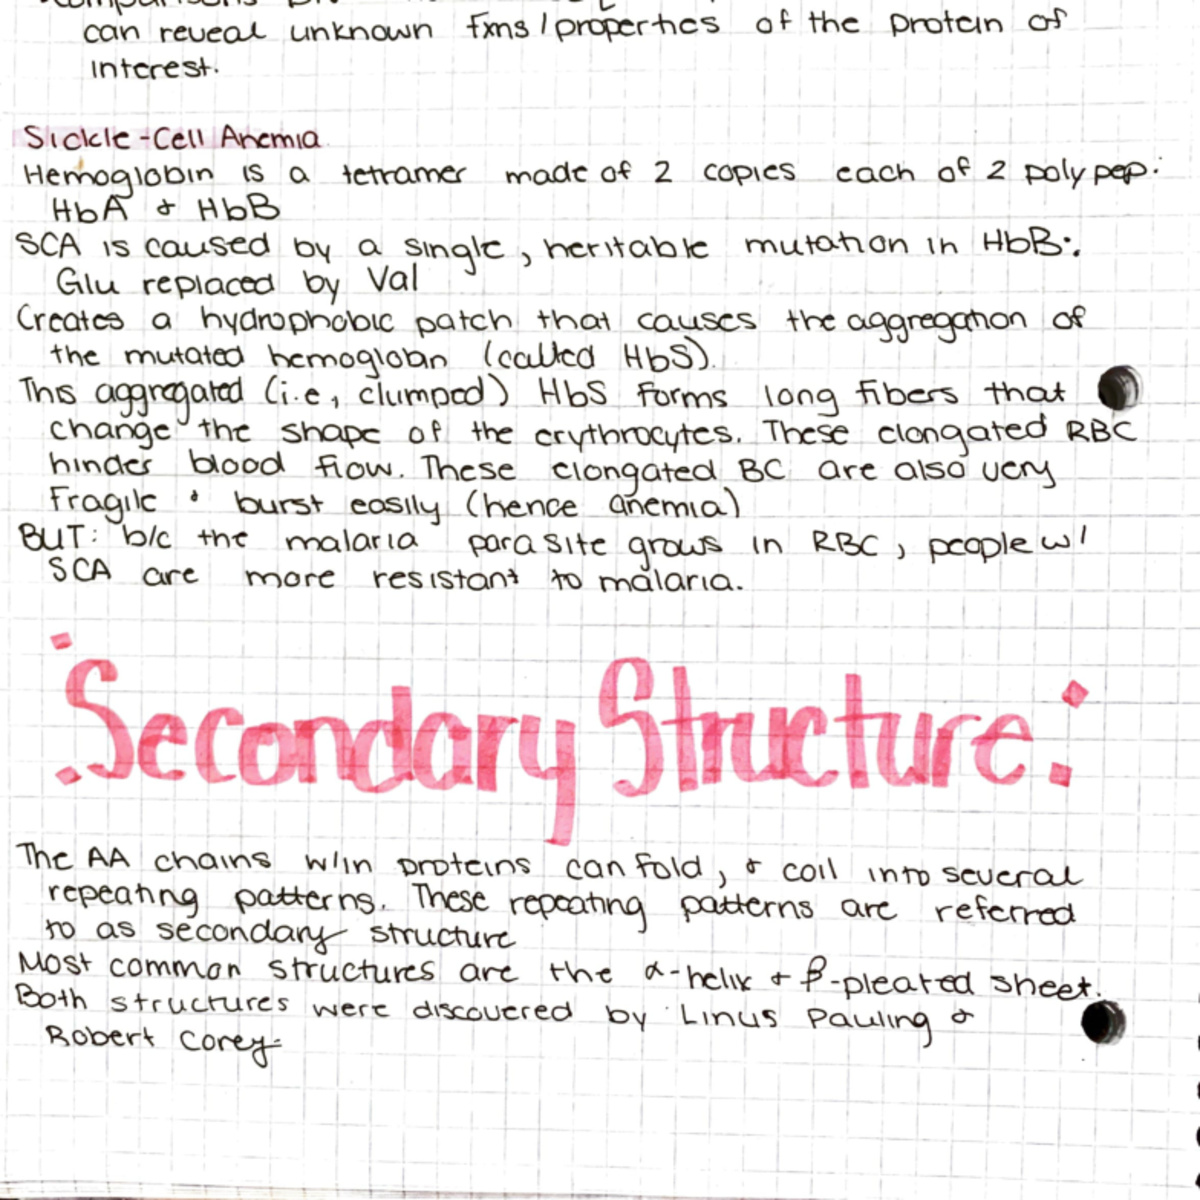 can reveal unknown fxns/properties of the protein of
interest.
Sickle-Cell Anemia
Hemoglobin is a tetramer made of 2 copies each of 2 polypep:
HbA & HbB
SCA is caused by a single, heritable mutation in HbB:
Glu replaced by Val
Creates a hydrophobic patch that causes the aggregation of
the mutated hemoglobin (called HbS).
This aggregated (i.e, clumped) HbS forms long fibers that
change the shape of the erythrocytes. These elongated RBC
hinder blood flow. These elongated BC are also very
Fragile & burst easily (hence anemia)
BUT: b/c the malaria parasite grows in RBC, people w/
SCA are more resistant to malaria.
:Secondary Structure:
The AA chains w/in proteins can fold, & coil into several
repeating patterns. These repeating patterns are referred
to as secondary structure
Most common structures are the α-helix & β-pleated sheet.
Both structures were discovered by Linus Pauling &
Robert Corey